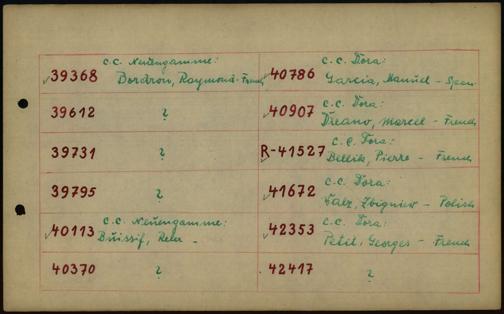 39368 c.c. Neuengamme:
Bordron, Raymond - French
39612 ?
39731 ?
39795 ?
40113 c.c. Neuengamme:
Buissif,
40370 ?
40786 c.c. Dora:
Garcia, Manuel - Span
40907 c.c. Dora:
Dreano, Marcel - French
R-41527 c.c. Dora:
Bellik, Pierre - French
41672 c.c. Dora:
Zbigniew - Polish
42353 c.c. Dora:
Petit, Georges - French
42417 ?